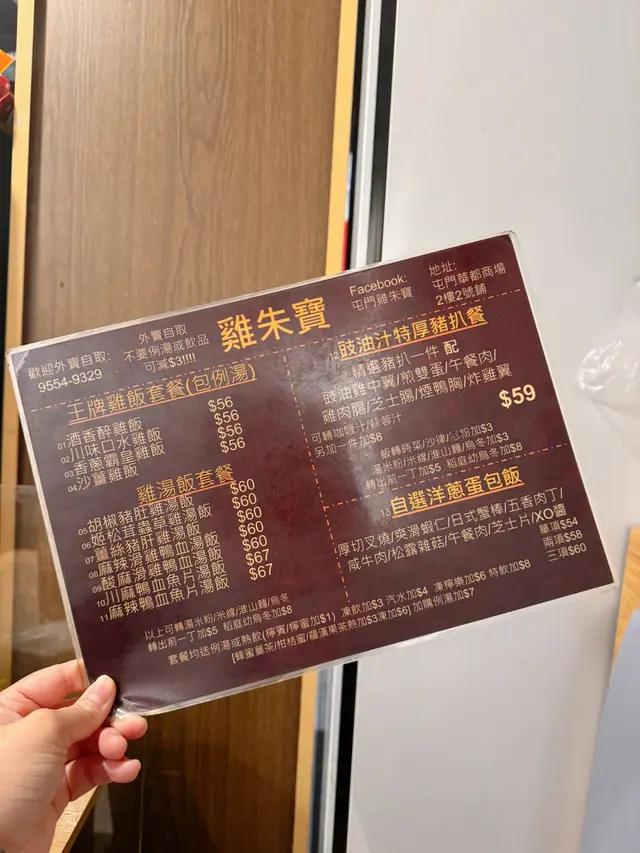 歡迎外賣自取:
9554-9329
外賣自取
不要例湯或飲品
可減$3!!!!
雞朱寶
Facebook:
屯門雞朱寶
地址:
屯門華都商場
2樓2號鋪
王牌雞飯套餐(包例湯)
01酒香醉雞飯 $56
02川味口水雞飯 $56
03香蔥霸皇雞飯 $56
04沙薑雞飯 $56
雞湯飯套餐
05胡椒豬肝雞湯飯 $60
06姬松茸蟲草雞湯飯 $60
07薑絲豬肝雞湯飯 $60
08麻辣滑雞鴨血湯飯 $60
09酸麻滑雞鴨血湯飯 $60
10川麻鴨血魚片湯飯 $67
11麻辣鴨血魚片湯飯 $67
以上可轉湯米粉/米線/淮山麵/烏冬
轉出前一丁加$5 稻庭幼烏冬加$8
12豉油汁特厚豬扒餐
精選豬扒一件 配
豉油雞中翼/煎雙蛋/午餐肉/
雞肉腸/芝士腸/煙鴨胸/炸雞翼
$59
可轉咖喱汁/蒜蓉汁
另加一件加$8
飯轉時菜/沙律/粉加$3
湯米粉/米線/淮山麵/烏冬加$3
轉出前一丁加$5 稻庭幼烏冬加$8
13自選洋蔥蛋包飯
厚切叉燒/爽滑蝦仁/日式蟹棒/五香肉丁/
咸牛肉/松露雜菇/午餐肉/芝士片/XO醬
單項$54
兩項$58
三項$60
套餐均送例湯或熱飲(檸賓/檸蜜加$1) 凍飲加$3 汽水加$4 凍檸樂加$6 特飲加$8
[蜂蜜薑茶/柑桔蜜/羅漢果茶熱加$3凍加$6] 加購例湯加$7